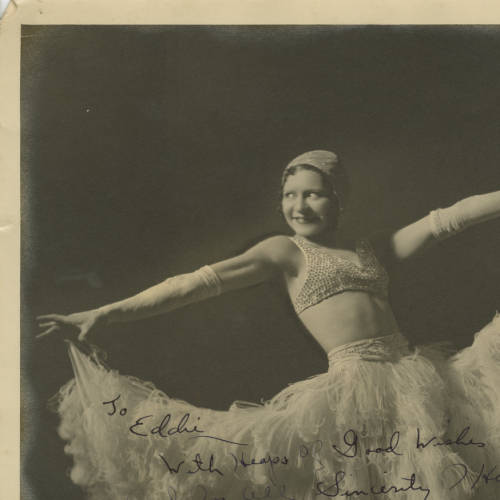 To
Eddie
With Heaps of Good Wishes
Sincerity